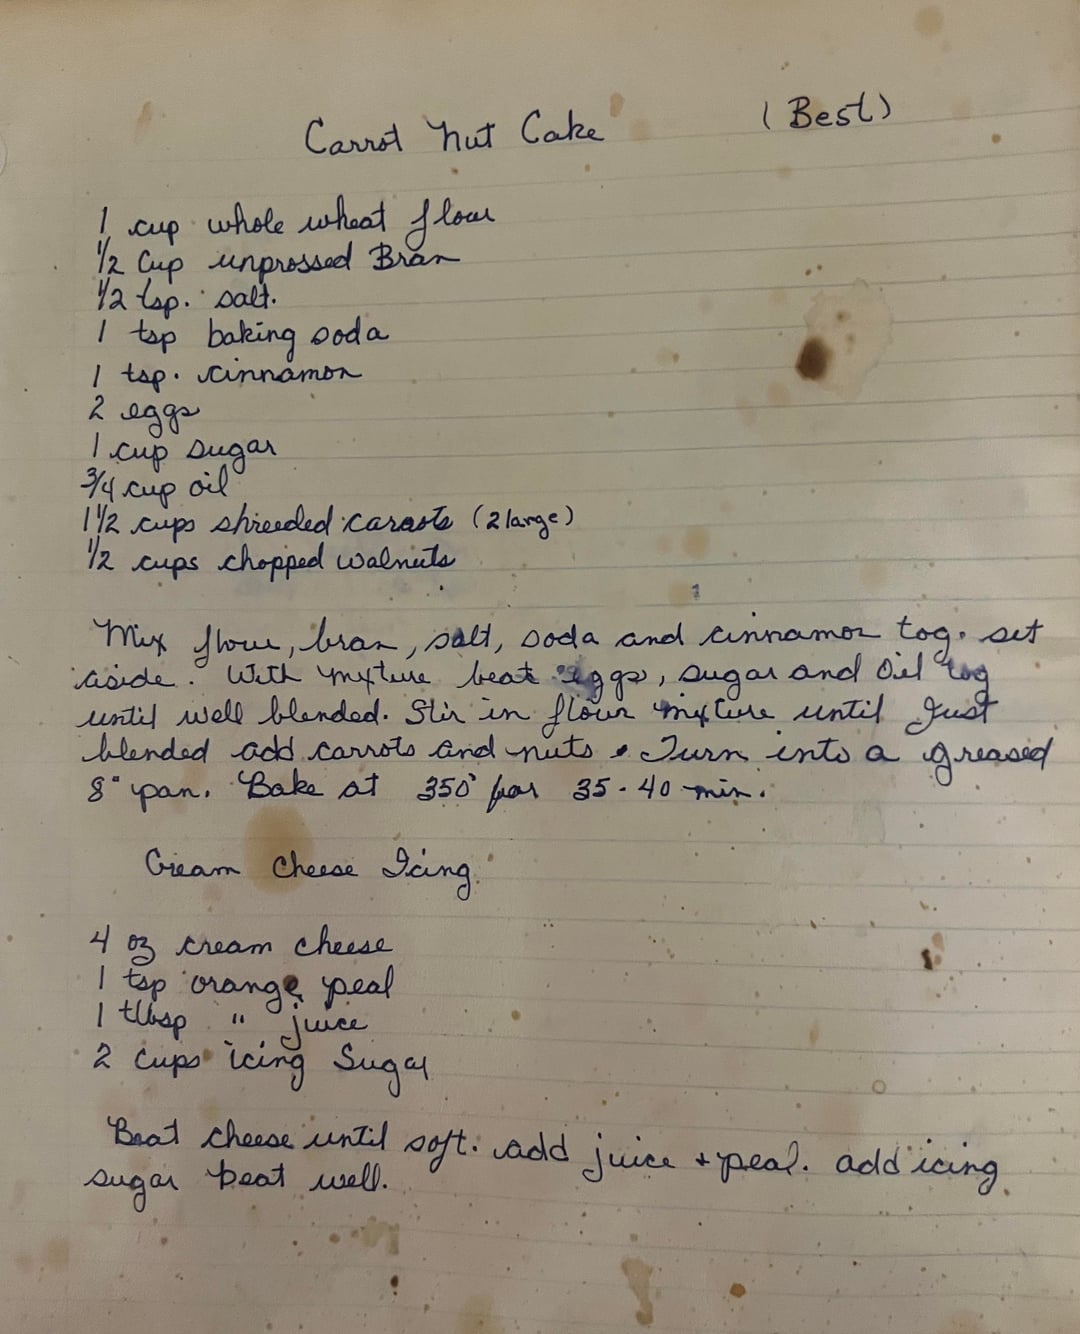 Carrot Nut Cake (Best)
1 cup whole wheat flour
1/2 Cup unprossed Bran
1/2 tsp. salt.
1 tsp baking soda
1 tsp. cinnamon
2 eggs
1 cup sugar
3/4 cup oil
1 1/2 cups shreeded carrots (2 large)
1/2 cups chopped walnuts
Mix flour, bran, salt, soda and cinnamon tog. set
aside. With mixture beat eggs, sugar and oil tog
until well blended. Stir in flour mixture until just
blended add carrots and nuts. Turn into a greased
8" pan. Bake at 350° for 35-40 min.
Cream Cheese Icing
4 oz cream cheese
1 tsp orange peal
1 tlbsp " juice
2 cups icing Sugar
Beat cheese until soft. add juice + peal. add icing
sugar beat well.